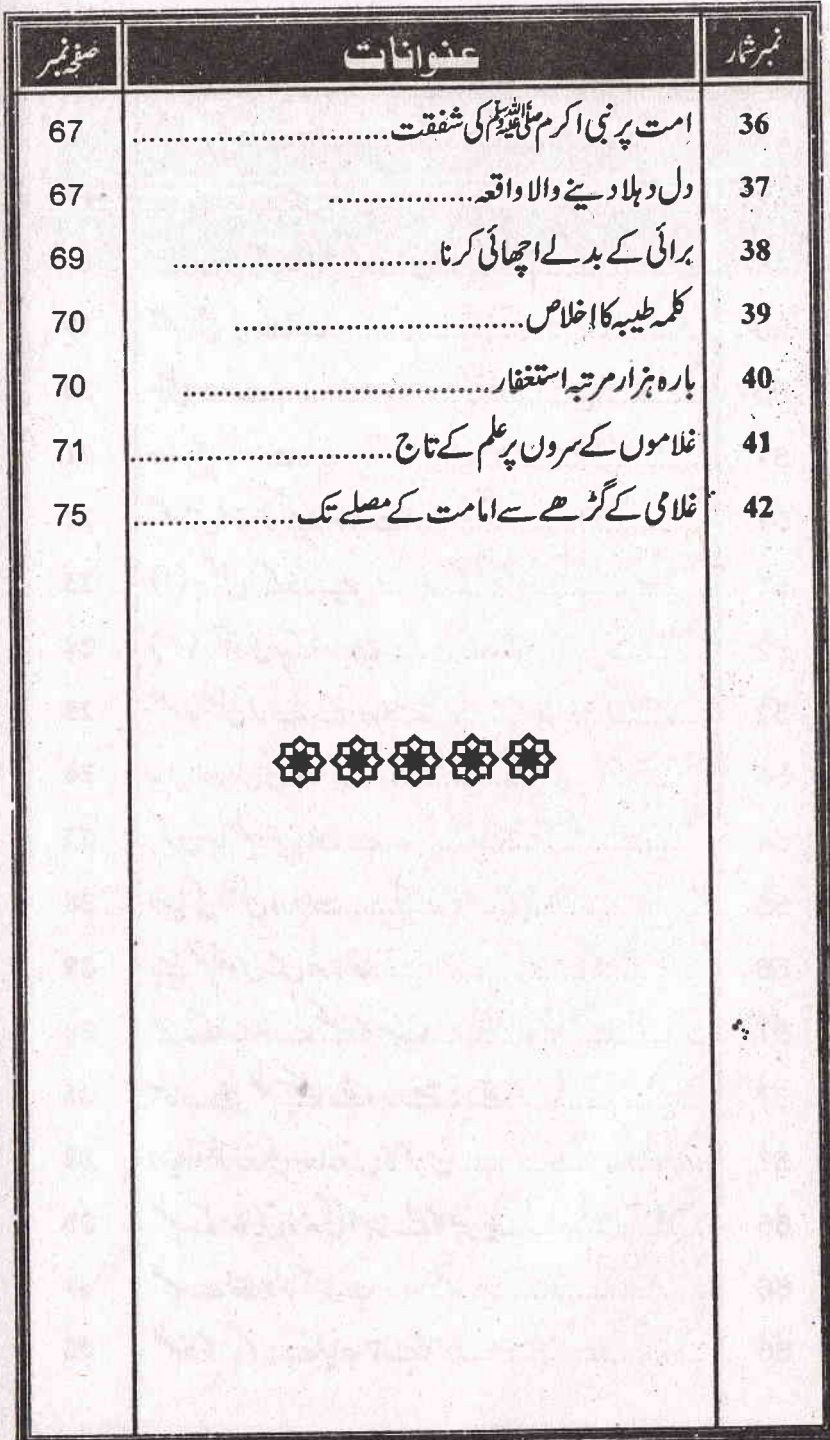 نمبر شمار عنوانات صفحہ نمبر
36 امت پر نبی اکرم ﷺ کی شفقت............................ 67
37 دل دہلا دینے والا واقعہ................. 67
38 برائی کے بدلے اچھائی کرنا........................... 69
39 کلمہ طیبہ کا اخلاص.............................. 70
40 بارہ ہزار مرتبہ استغفار................................ 70
41 غلاموں کے سرون پر علم کے تاج........................... 71
42 غلامی کے گڑھے سے امامت کے مصلے تک................. 75